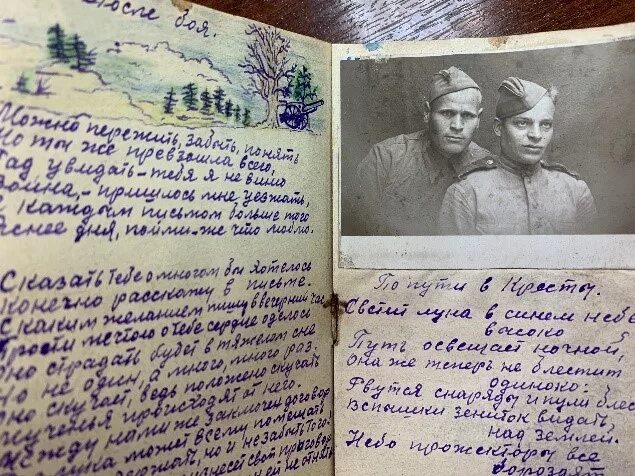 После боя.
Можно пережить, забыть, понять
Но ты же превзошла всего,
Рад увидать-тебя я не вино
Война, - пришлось мне уезжать,
С каждым письмом больше того
Яснее дня, пойми-же что люблю.
Сказать тебе о многом бы хотелось
Конечно расскажу в письме.
С каким желанием пишу в вечерний час
Прости мечтою о тебе сердце оделось
Оно страдать будет в тяжелом сне
Но не один, а много, много раз.
Оно скучает, ведь положено скучать
мученья происходят от него.
Между нами же заключен договор
может всему помешать
но и не забыть того
свой приговор
По пути в Кресты.
Светит луна в синем небе
высоко
Путь освещает ночной,
она же теперь не блестит
одиноко:
Рвутся снаряды и пули блес
Вспышки зениток видать,
над землей.
Небо прожекторы все
бороздят